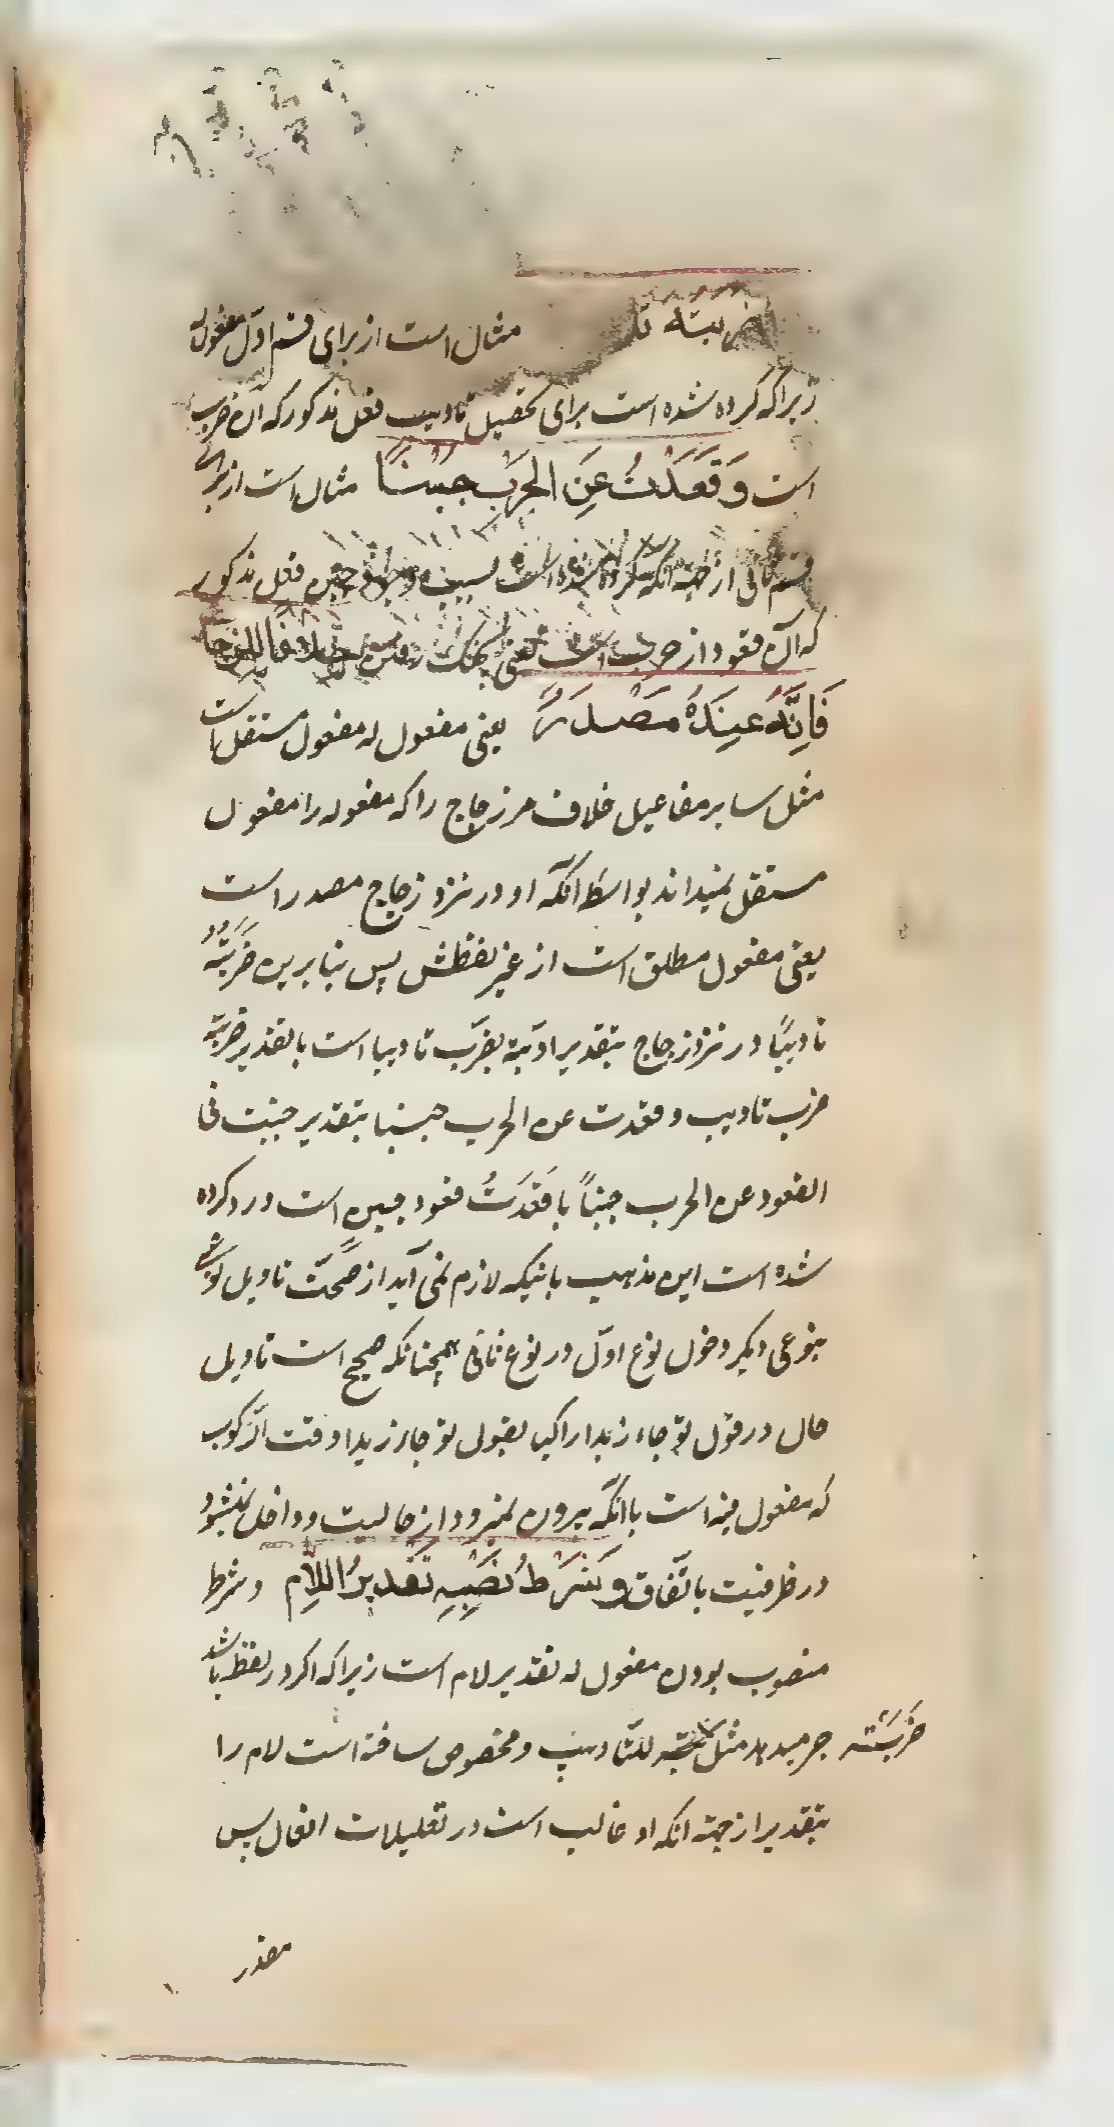 ضربته تا مثال است از برای قسم اول مفعول له
زیرا که کرده شده است برای تحصیل تادیب فعل مذکور که آن ضرب
است وَقَعَدْتُ عَنِ الحَرْبِ جُبْنًا مثال است از برای
قسم ثانی از جهة آنکه کرده شده است بسبب وجود جبن فعل مذکور
که آن قعود از حرب است یعنی بجنک رفتن خلافا للزجاج
فَاِنَّهُ عِنْدَهُ مَصْدَرٌ یعنی مفعول له مفعول مستقل است
مثل سایر مفاعیل خلاف مر زجاج را که مفعوله را مفعول
مستقل نمیداند بواسطه آنکه او در نزد زجاج مصدر است
یعنی مفعول مطلق است از غیر لفظش پس بنابرین ضَرَبْتُهُ
تادیبًا در نزد زجاج بتقدیر ادبته بضرب تادیبا است یا بتقدیر ضربته
ضرب تادیب و قعدت عن الحرب جبنا بتقدیر جبنت فی
القعود عن الحرب جبناً یا قَعَدْتُ قعود جبن است و رد کرده
شده است این مذهب باینکه لازم نمی آید از صحّت تاویل نوعی
بنوعی دیکر دخول نوع اوّل در نوع ثانی همچنانکه صحیح است تاویل
حال در قول تو جاء زید راکبا بقول تو جاء زید وقت الرّکوب
که مفعول فیه است با آنکه بیرون نمیرود از حالیت و داخل نمیشود
در ظرفیت باتّفاق وَ شَرْطُ نَصْبِهِ تَقْدِیرُ اللّامِ و شرط
منصوب بودن مفعول له تقدیر لام است زیرا که اکر در لفظ باشد
جر میدهد مثل ضَرَبْتُه للتّادیب و مخصوص ساخته است لام را
بتقدیر از جهة آنکه او غالب است در تعلیلات افعال پس
مقدر